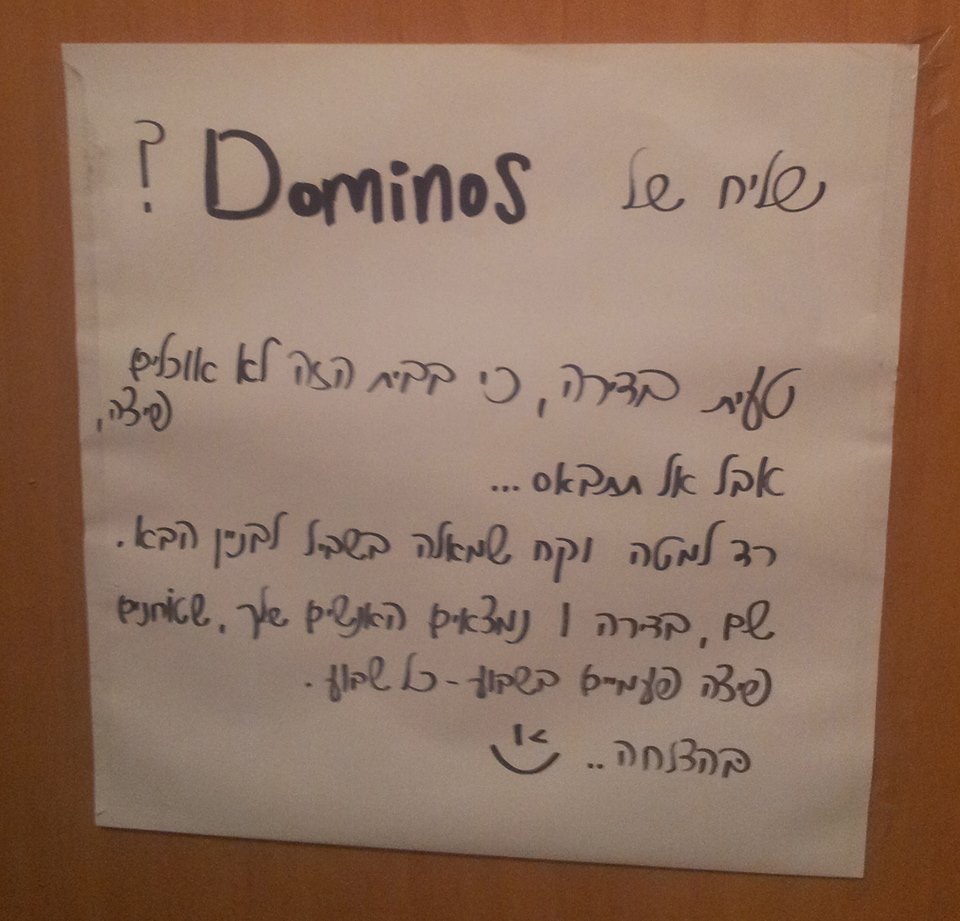 שליח של Dominos ?
טעית בדירה, כי בבית הזה לא אוכלים
פיצה,
אבל אל תתבאס...
רד למטה וקח שמאלה בשביל לבניין הבא.
שם, בדירה 1 נמצאים האנשים שלך, שטוחנים
פיצה פעמיים בשבוע - כל שבוע.
בהצלחה..